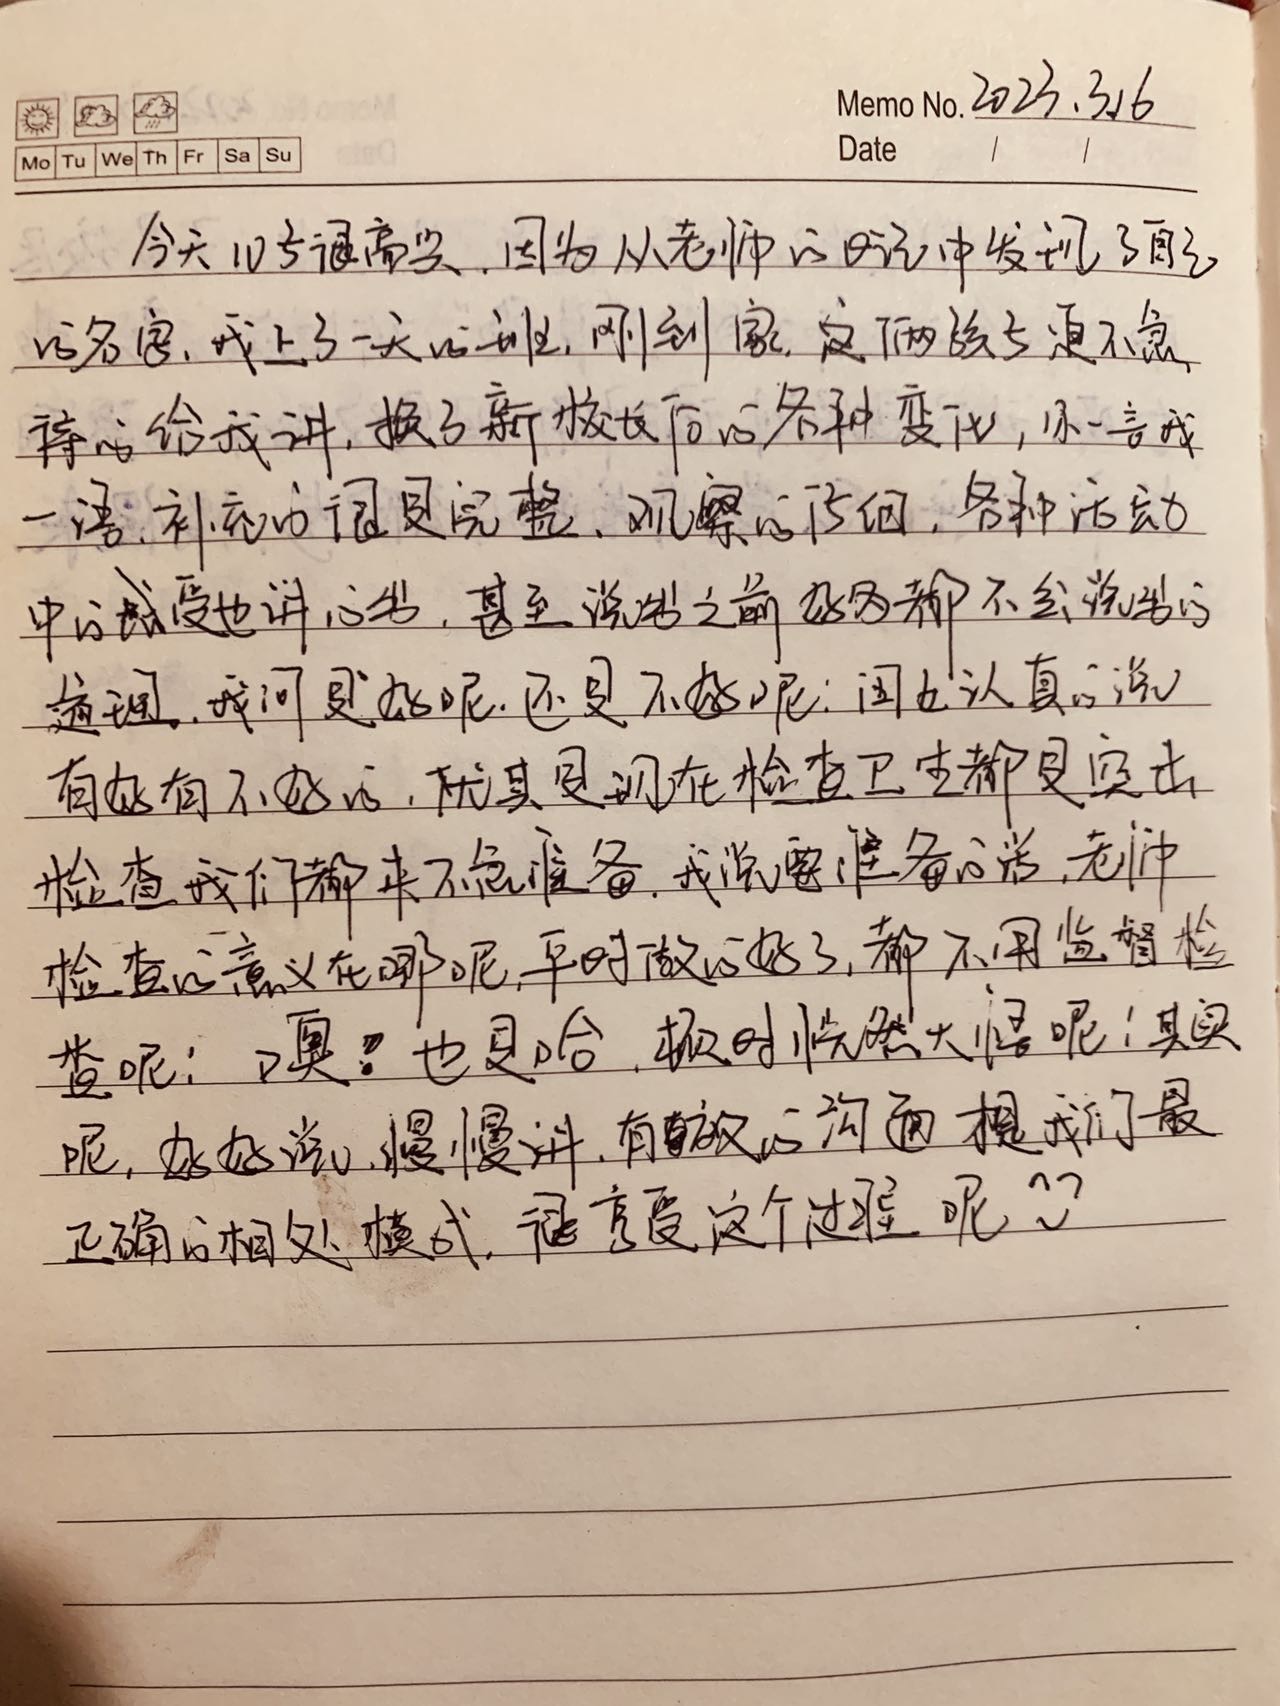 Memo No. 2023.3.16
Mo Tu We Th Fr Sa Su
Date / /
今天10号很高兴、因为从老师的日记中发现了自己
的名字、我上了一天的班、刚到家、这俩孩子迫不急
待的给我讲、换了新校长后的各种变化，你一言我
一语、补充的很是完整、观察的仔细、各种活动
中的感受也讲的出、甚至说出之前好多都不会说出的
道理、我问是好呢、还是不好呢；闺女认真的说
有好有不好的、尤其是现在检查卫生都是突击
检查我们都来不急准备、我说要准备的话、老师
检查的意义在哪呢、平时做的好了、都不用监督检
查呢！噢？也是哈、顿时恍然大悟呢！其实
呢、好好说、慢慢讲、有效的沟通才是我们最
正确的相处模式、很享受这个过程呢